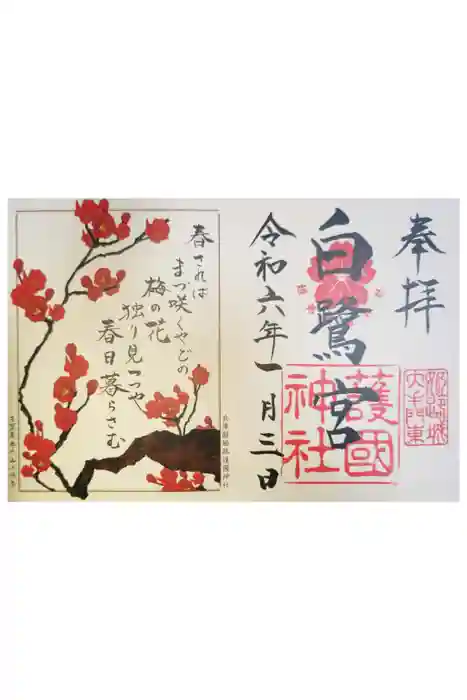 奉拝
姫路城
大手門東
白鷺宮
護國
神社
令和六年一月三日
春されば
まづ咲くやどの
梅の花
独り見つつや
春日暮らさむ
兵庫縣姫路護國神社